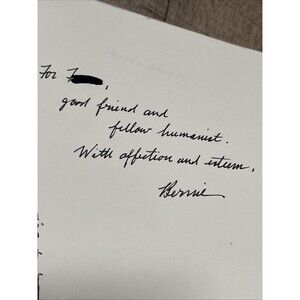 For
good friend and
fellow humanist.
With affection and esteem,
Bernie